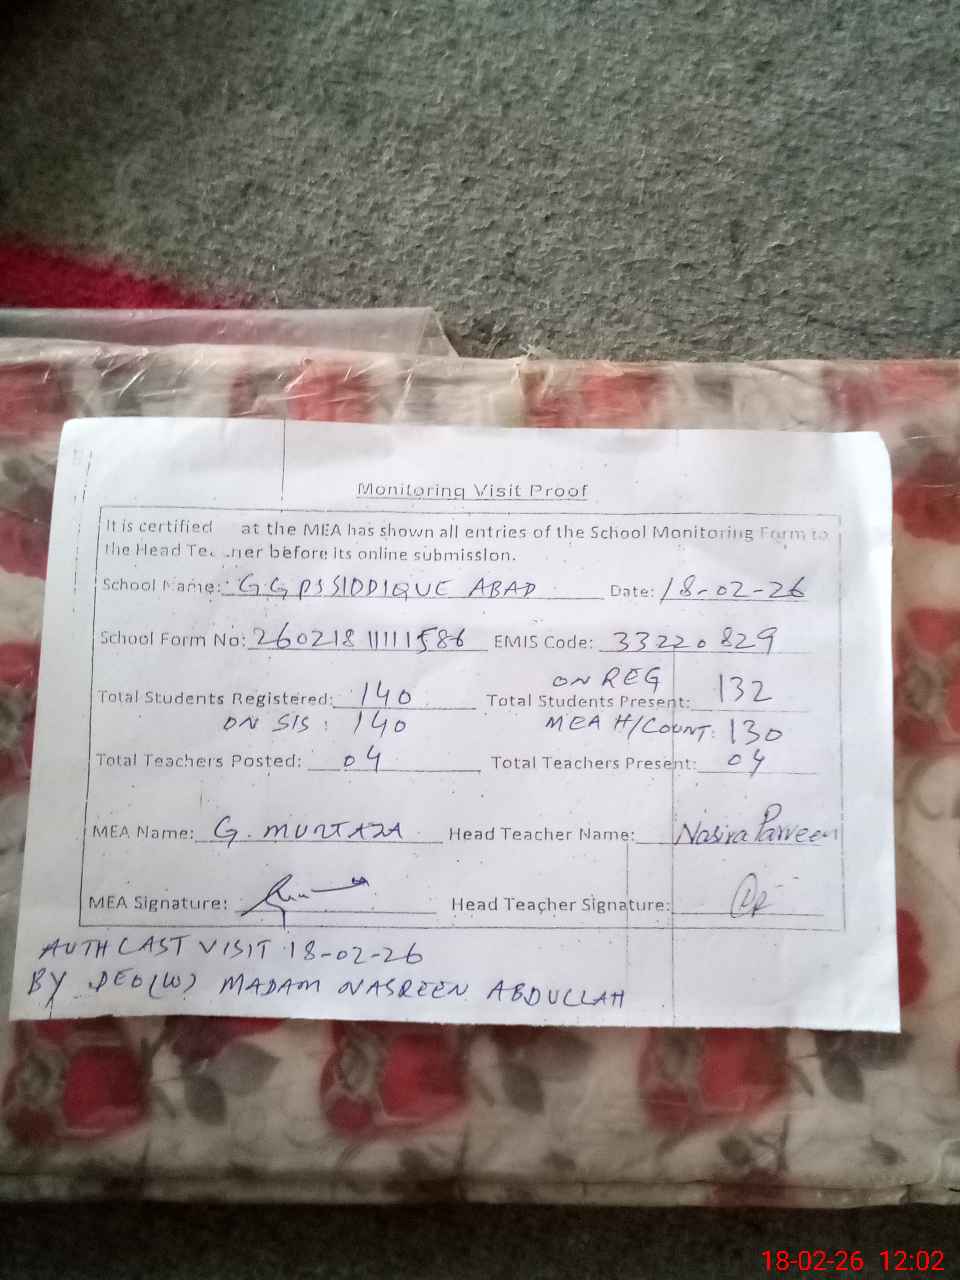 Monitoring Visit Proof
It is certified at the MEA has shown all entries of the School Monitoring Form to
the Head Te. .ner before its online submission.
School Name: GGPS SIDDIQUE ABAD Date: 18-02-26
School Form No: 26021811111586 EMIS Code: 33220829
ON REG
Total Students Registered: 140 Total Students Present: 132
ON SIS: 140 MEA H/COUNT: 130
Total Teachers Posted: 04 Total Teachers Present: 04
MEA Name: G. MURTAZA Head Teacher Name: Nasira Parveen
MEA Signature: Head Teacher Signature:
AUTH LAST VISIT 18-02-26
BY DEO(W) MADAM NASREEN ABDULLAH
18-02-26 12:02